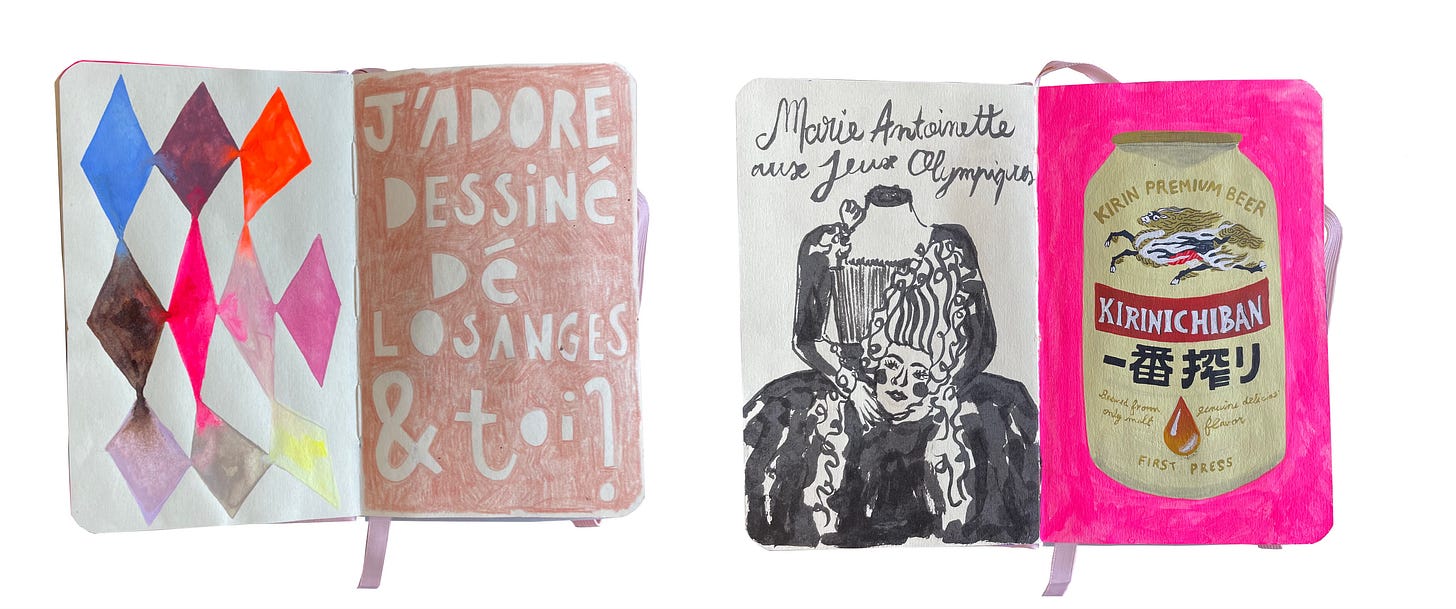 J'ADORE
DESSINÉ
DÉ
LOSANGES
& toi?
Marie Antoinette
aux Jeux Olympiques
KIRIN PREMIUM BEER
KIRINICHIBAN
一番搾り
Brewed from
only malt
genuine delicious
flavor
FIRST PRESS